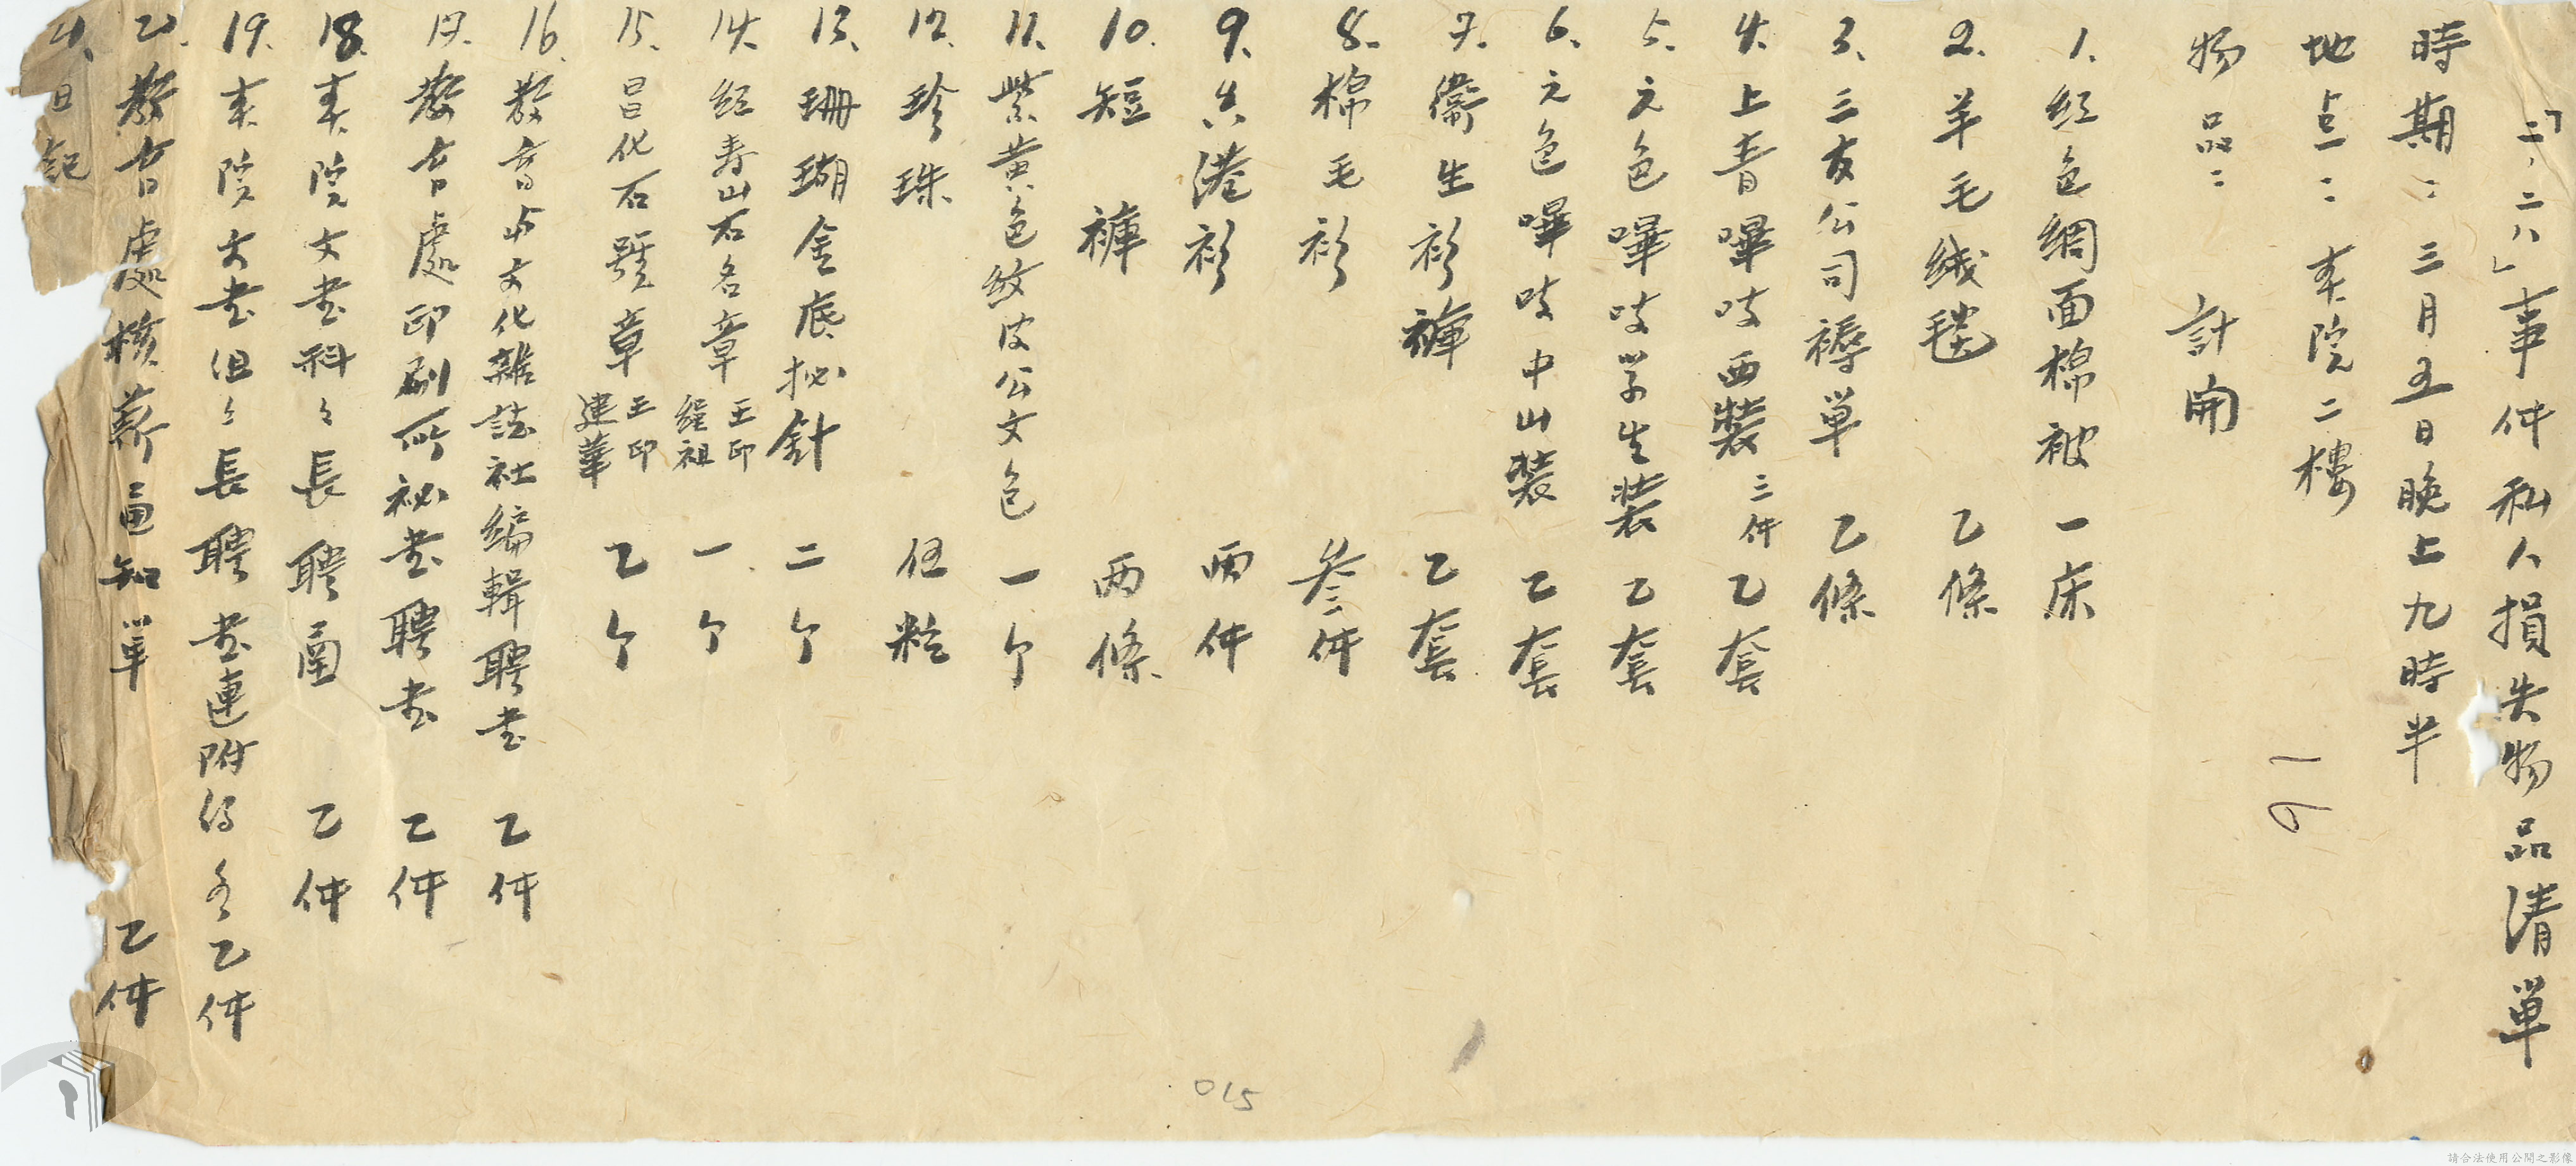 「二・二八」事件私人損失物品清單
時期：三月五日晚上九時半
地点：本院二樓
物品：計開
1. 紅色綢面棉被 一床
2. 羊毛絨毯 乙條
3. 三友公司褥单 乙條
4. 上青嗶吱西裝三件 乙套
5. 元色嗶吱学生裝 乙套
6. 元色嗶吱中山裝 乙套
7. 衞生衫褲 乙套
8. 棉毛衫 叁件
9. 港衫 两件
10. 短褲 两條
11. 紫黄色紋皮公文包 一个
12. 珍珠 伍粒
13. 珊瑚金底扣針 二个
14. 寿山石名章 王印經祖 一个
15. 昌化石號章 王印建華 乙个
16. 教育與文化雜誌社編輯聘书 乙件
17. 教育處印刷所祕书聘书 乙件
18. 本院文书科々長聘函 乙件
19. 本院文书组々長聘书連附件各乙件
教育處核薪通知单 乙件
日記
016
015
請合法使用公開之影像